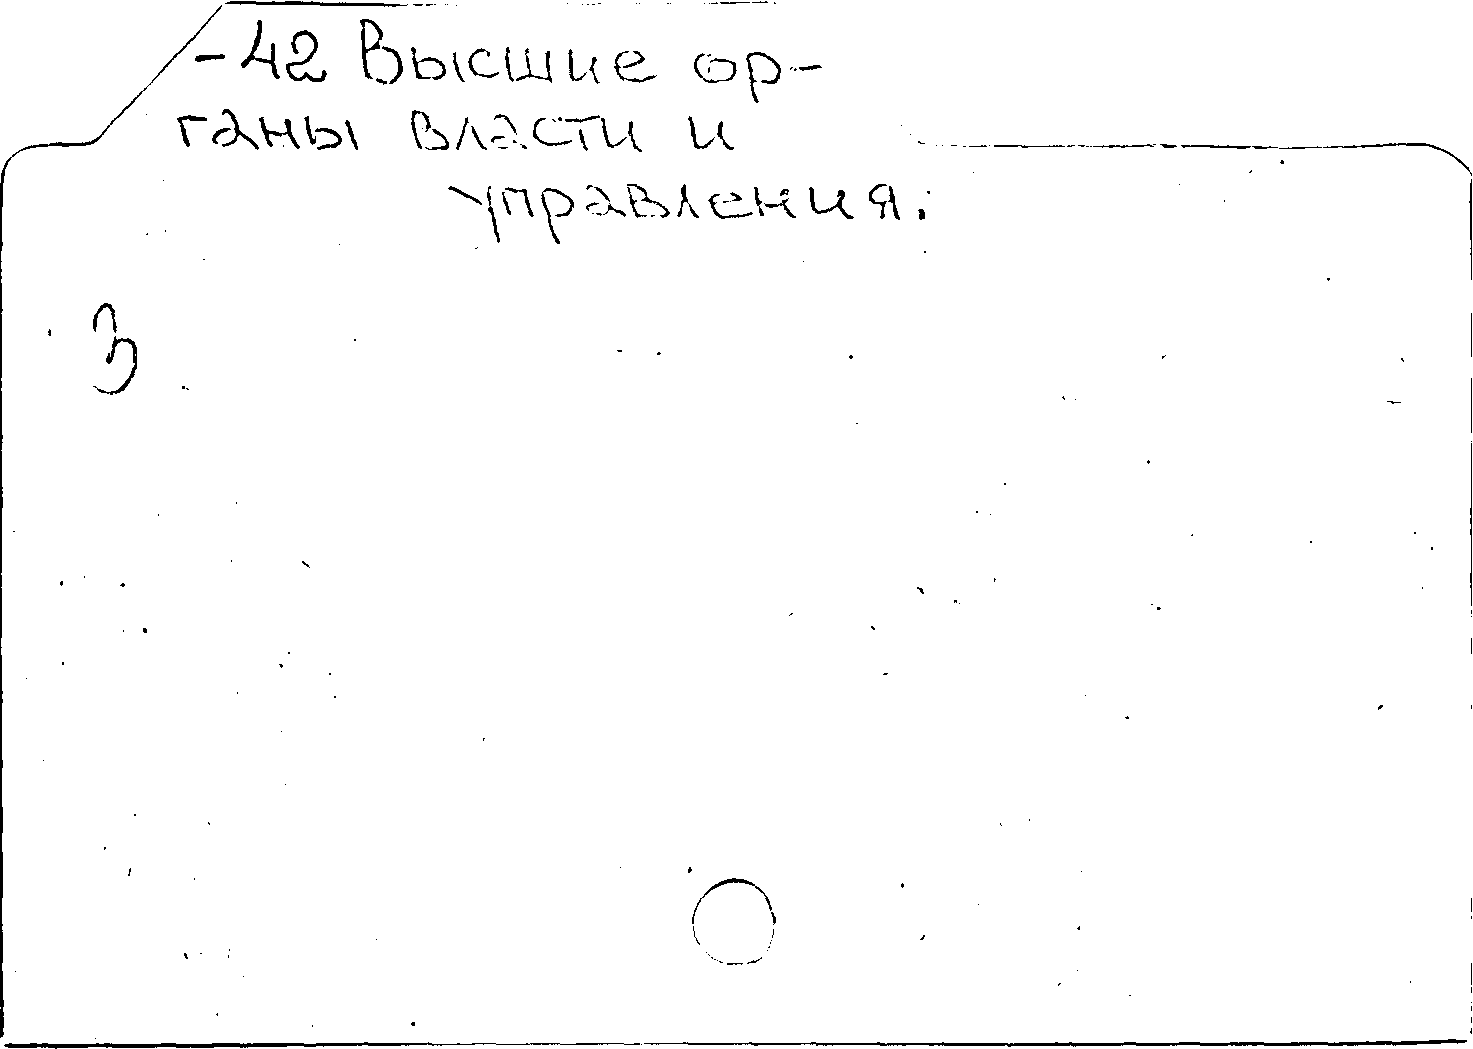 -42 Высшие ор-
ганы власти и
управления.
3